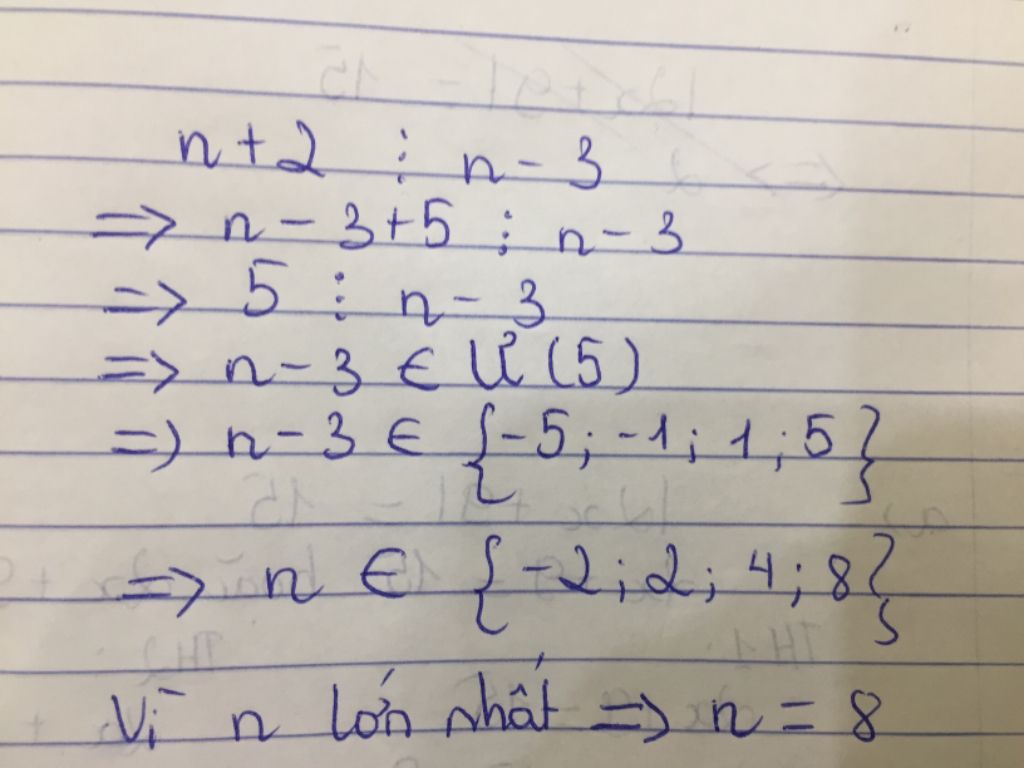 n+2 ⋮ n-3
=> n-3+5 ⋮ n-3
=> 5 ⋮ n-3
=> n-3 ∈ Ư(5)
=) n-3 ∈ {-5; -1; 1; 5}
=> n ∈ {-2; 2; 4; 8}
Vì n lớn nhất => n = 8